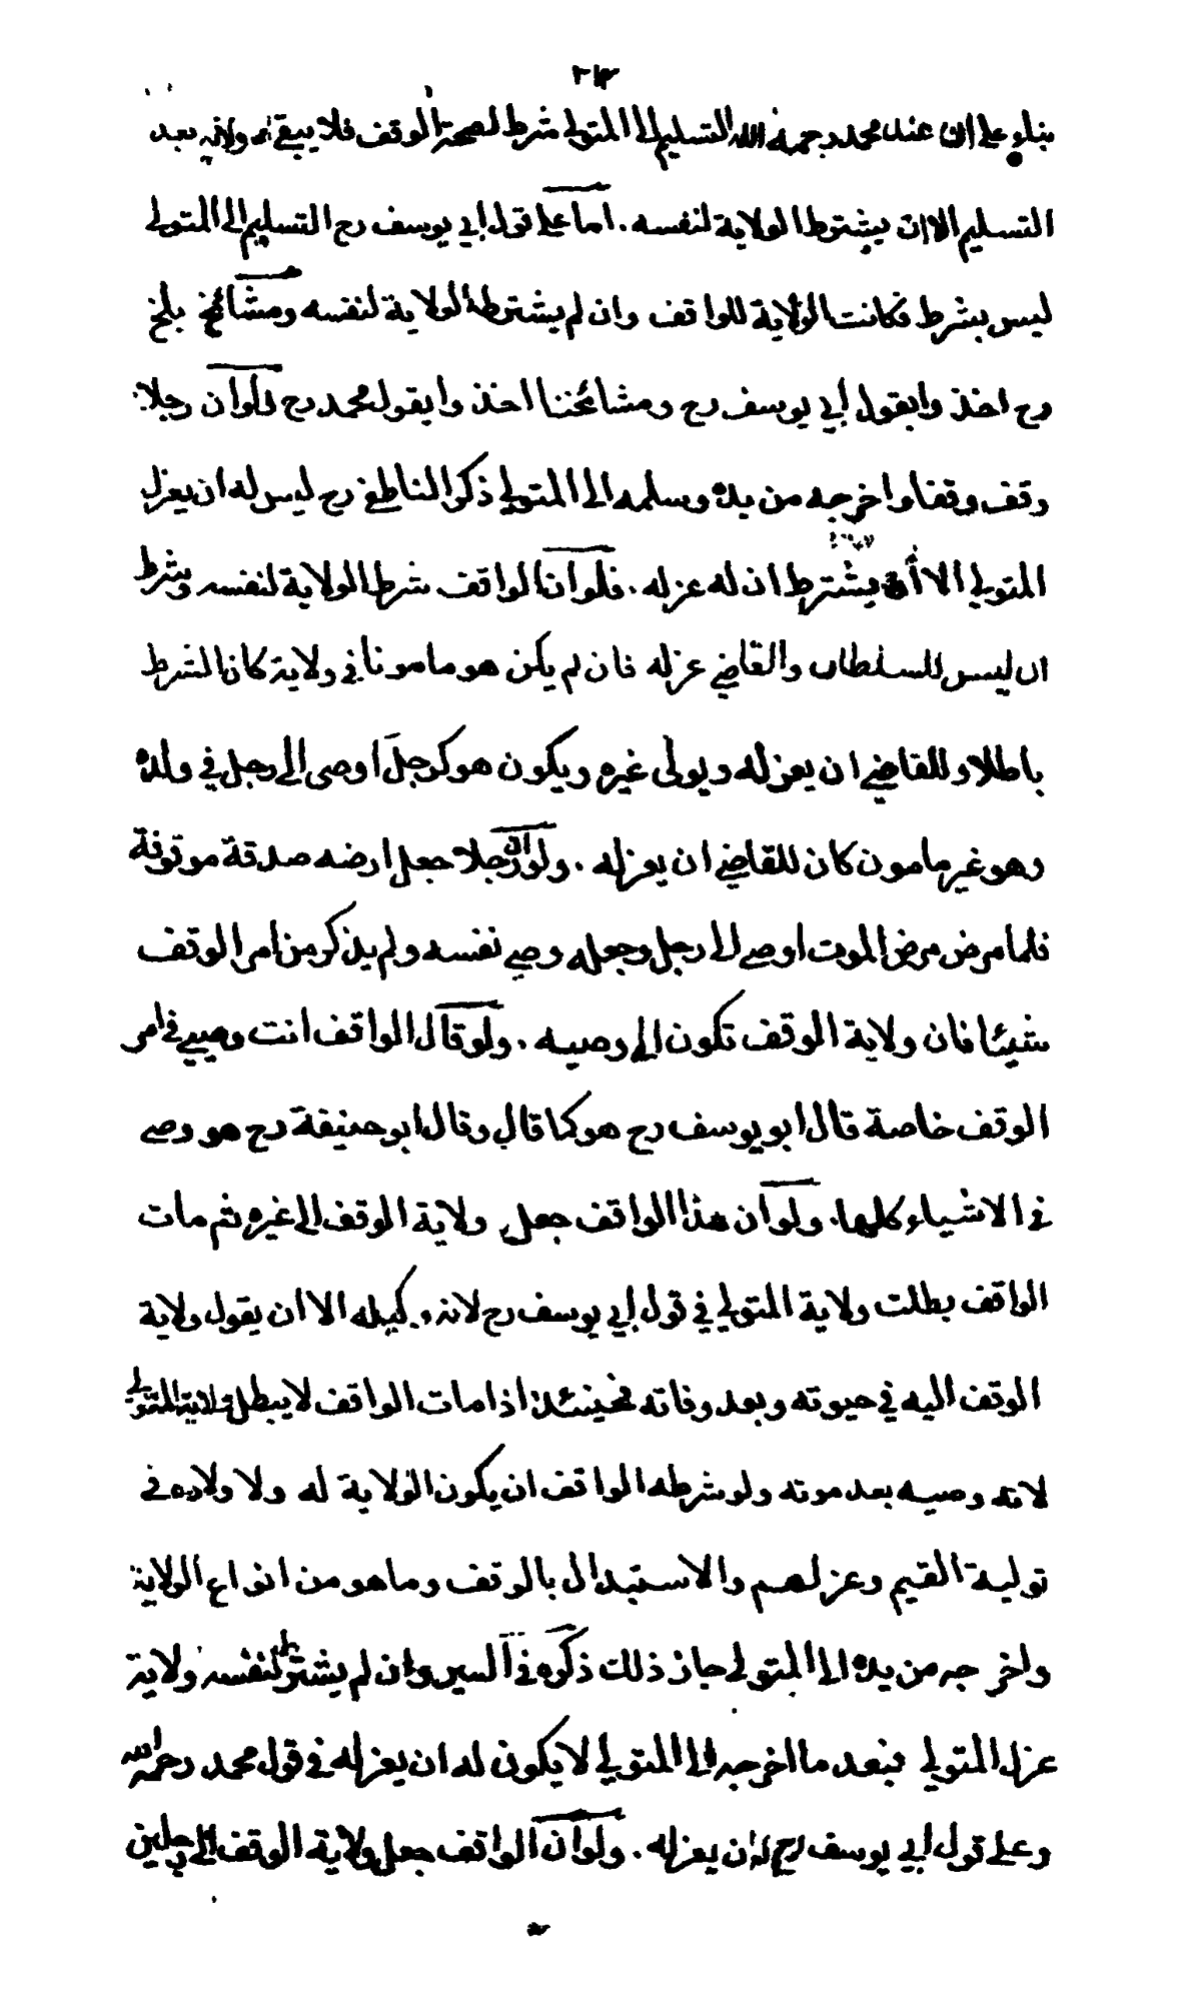 ٢١٣
بناء على ان عند محمد رحمه الله التسليم الى المتولى شرط لصحة الوقف فلا يبقى له ولاية بعد
التسليم الا ان يشترط الولاية لنفسه . اما على قول ابي يوسف رح التسليم الى المتولى
ليس بشرط فكانت الولاية للواقف وان لم يشترط الولاية لنفسه ومشائخ بلخ
رح اخذوا بقول ابي يوسف رح ومشائخنا اخذوا بقول محمد رح ولو ان رجلا
وقف وقفا واخرجه من يده وسلمه الى المتولي ذكر الناطفي رح ليس له ان يعزل
المتولي الا أن يشترط ان له عزله . فلو ان الواقف شرط الولاية لنفسه وشرط
ان ليس للسلطان والقاضي عزله فان لم يكن هو مامونا في ولاية كان الشرط
باطلا وللقاضي ان يعزله ويولى غيره ويكون هو كرجل اوصى الى رجل في ولده
وهو غير مامون كان للقاضي ان يعزله . ولو ان رجلا جعل ارضه صدقة موقوفة
فلما مرض مرض الموت اوصى الى رجل وجعله وصي نفسه ولم يذكر من امر الوقف
شيئا فان ولاية الوقف تكون الى وصيه . ولو قال الواقف انت وصيي في امر
الوقف خاصة قال ابو يوسف رح هو كما قال وقال ابو حنيفة رح هو وصي
في الاشياء كلها . ولو ان هذا الواقف جعل ولاية الوقف الى غيره ثم مات
الواقف بطلت ولاية المتولي في قول ابي يوسف رح لانه وكيله الا ان يقول ولاية
الوقف اليه في حيوته وبعد وفاته فحينئذ اذا مات الواقف لا يبطل ولاية المتولي
لانه وصيه بعد موته ولو شرط الواقف ان يكون الولاية له ولا ولاده في
تولية القيم وعزلهم والاستبدال بالوقف وما هو من انواع الولاية
واخرجه من يده الى المتولي جاز ذلك ذكره في السير وان لم يشترط لنفسه ولاية
عزل المتولي فبعد ما اخرجه الى المتولي لا يكون له ان يعزله في قول محمد رحمه الله
وعلى قول ابي يوسف رح له ان يعزله . ولو ان الواقف جعل ولاية الوقف الى رجلين